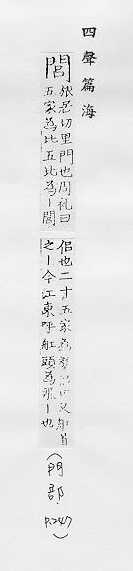 四聲篇海
閭
切里門也周礼曰
五家為比五比為｜閭
侶也二十五家為又舡首
之｜今江東呼舡頭為飛｜也
(門部 P.247)